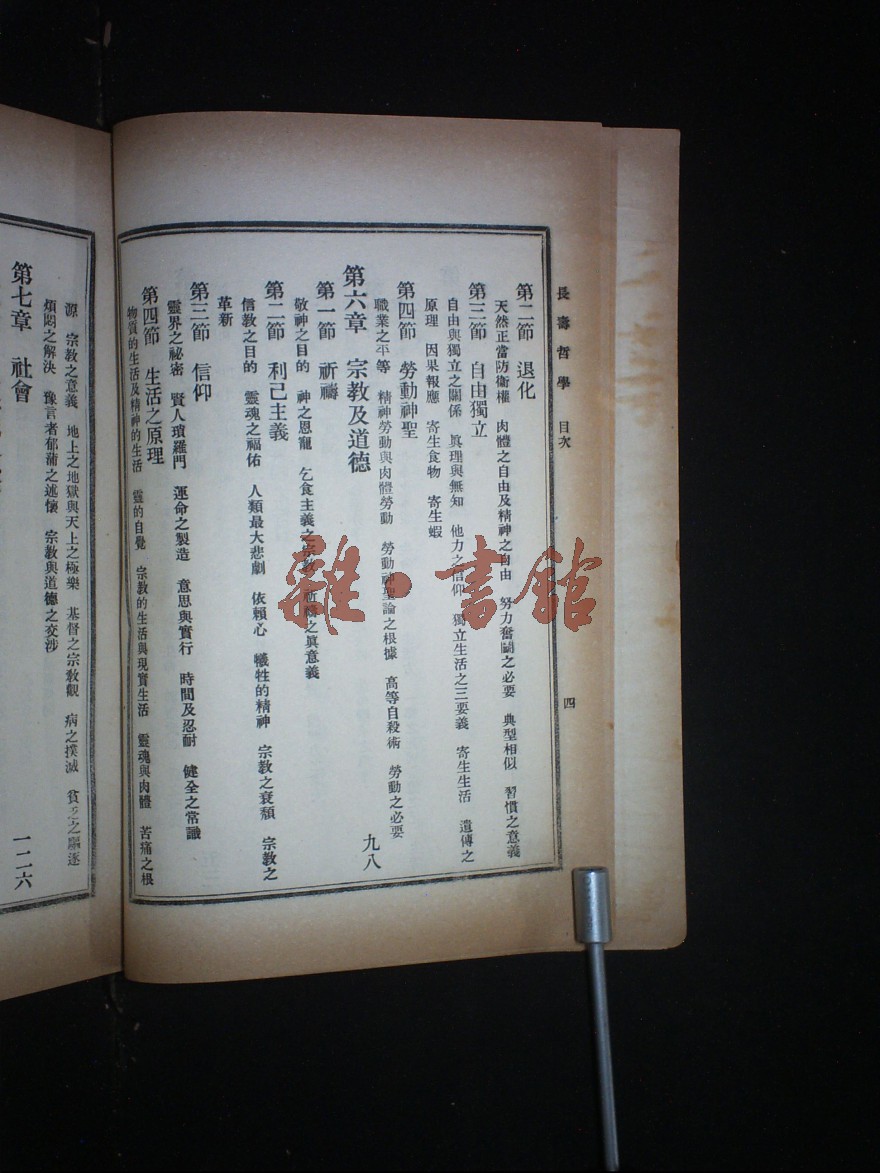 長壽哲學 目次
四
第二節 退化
天然正當防衛權 肉體之自由及精神之自由 努力奮鬭之必要 典型相似 習慣之意義
第三節 自由獨立
自由與獨立之關係 眞理與無知 他力之信仰 獨立生活之三要義 寄生生活 遺傳之
原理 因果報應 寄生食物 寄生蝦
第四節 勞動神聖
職業之平等 精神勞動與肉體勞動 勞動神聖論之根據 高等自殺術 勞動之必要
第六章 宗教及道德 九八
第一節 祈禱
敬神之目的 神之恩寵 乞食主義之宗教 祈禱之眞意義
第二節 利己主義
信教之目的 靈魂之福佑 人類最大悲劇 依賴心 犧牲的精神 宗教之衰頹 宗教之
革新
第三節 信仰
靈界之祕密 賢人瑣羅門 運命之製造 意思與實行 時間及忍耐 健全之常識
第四節 生活之原理
物質的生活及精神的生活 靈的自覺 宗教的生活與現實生活 靈魂與肉體 苦痛之根
源 宗教之意義 地上之地獄與天上之極樂 基督之宗教觀 病之撲滅 貧乏之驅逐
煩悶之解決 豫言者郁蒲之述懷 宗教與道德之交涉
第七章 社會 一二六
雜·書館